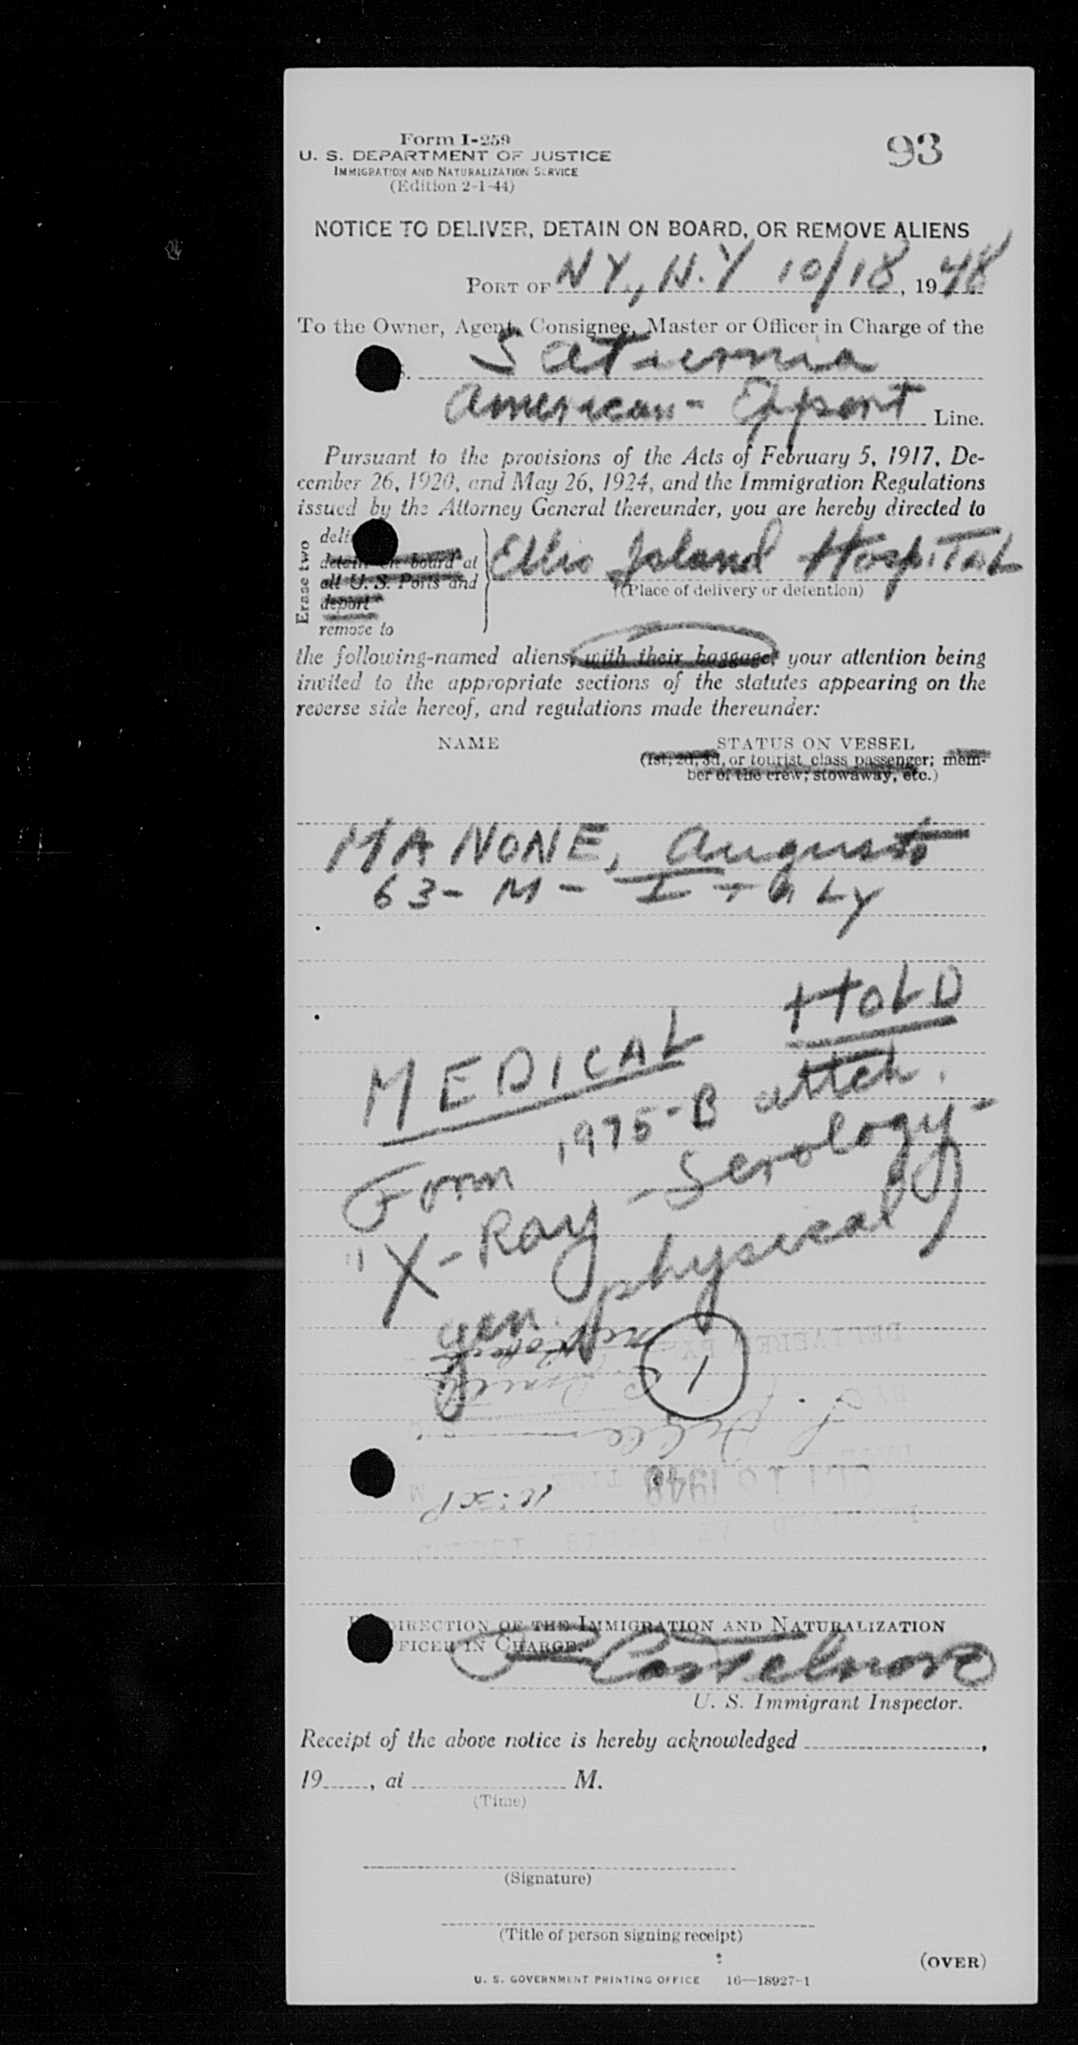 Form I-259
93
U. S. DEPARTMENT OF JUSTICE
IMMIGRATION AND NATURALIZATION SERVICE
(Edition 2-1-44)
NOTICE TO DELIVER, DETAIN ON BOARD, OR REMOVE ALIENS
PORT OF NY., N.Y 10/18, 1948
To the Owner, Agent, Consignee, Master or Officer in Charge of the
S. Saturnia
American-Export Line.
Pursuant to the provisions of the Acts of February 5, 1917, De-
cember 26, 1920, and May 26, 1924, and the Immigration Regulations
issued by the Attorney General thereunder, you are hereby directed to
Erase two
deli
detain on board at
all U. S. Ports and
deport
remove to
Ellis Island Hospital
(Place of delivery or detention)
the following-named aliens, with their baggage, your attention being
invited to the appropriate sections of the statutes appearing on the
reverse side hereof, and regulations made thereunder:
NAME
STATUS ON VESSEL
(1st, 2d, 3d, or tourist class passenger; mem-
ber of the crew; stowaway, etc.)
MANONE, Augusto
63- M- ITALY
MEDICAL HOLD
Form 1975-B attch.
"X-Ray - Serology-
gen. physical
1
DELIVERED
1948
DIRECTION OF THE IMMIGRATION AND NATURALIZATION
FICER IN CHARGE.
Castelnovo
U. S. Immigrant Inspector.
Receipt of the above notice is hereby acknowledged ,
19 , at M.
(Time)
(Signature)
(Title of person signing receipt)
(OVER)
U. S. GOVERNMENT PRINTING OFFICE 16—18927-1